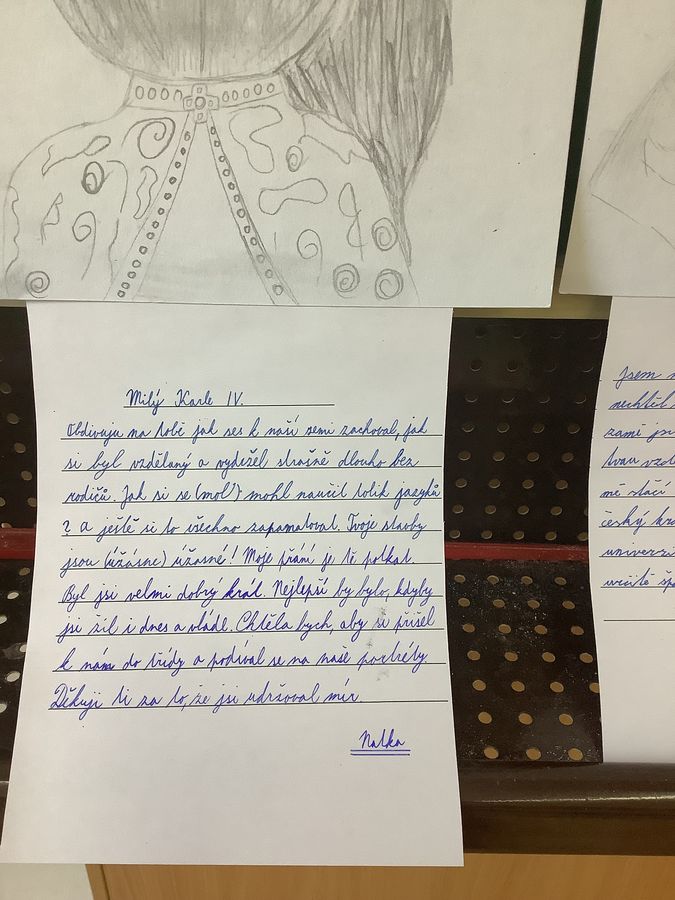 Milý Karle IV.
Obdivuju na tobě jak ses k naší zemi zachoval, jak
si byl vzdělaný a vydržel strašně dlouho bez
rodičů. Jak si se (mol) mohl naučit tolik jazyků
? a ještě si to všechno zapamatovat. Tvoje stavby
jsou (úžásne) úžasné! Moje přání je tě potkat.
Byl jsi velmi dobrý král. Nejlepší by bylo, kdyby
jsi žil i dnes a vládl. Chtěla bych, aby si přišel
k nám do třídy a podíval se na naše portréty.
Děkuji ti za to, že jsi udržoval mír.
Natka
Jsem
nechtěl
zamě
tvou
mě stačí
český
univerzi
určitě